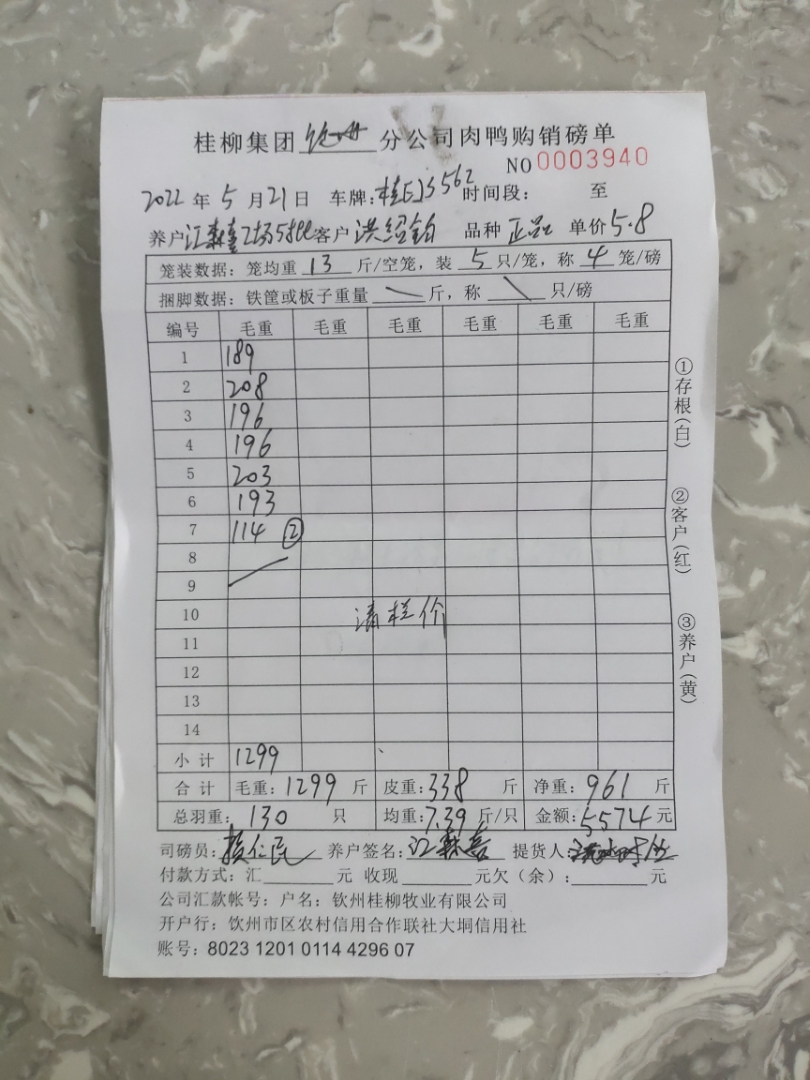 桂柳集团 钦州 分公司肉鸭购销磅单
NO 0003940
2022 年 5 月 21 日 车牌: 时间段: 至
养户 客户 洪绍 品种 正品 单价 5.8
笼装数据：笼均重 13 斤/空笼，装 5 只/笼，称 4 笼/磅
捆脚数据：铁筐或板子重量 斤，称 只/磅
编号 毛重 毛重 毛重 毛重 毛重 毛重
1 189
2 208
3 196
4 196
5 203
6 193
7 114 ②
8
9
10 清栏价
11
12
13
14
小计 1299
合计 毛重: 1299 斤 皮重: 338 斤 净重: 961 斤
总羽重: 130 只 均重: 7.39 斤/只 金额: 5574 元
司磅员: 仁民 养户签名: 江森喜 提货人:
付款方式：汇 元 收现 元欠（余）: 元
公司汇款帐号：户名：钦州桂柳牧业有限公司
开户行：钦州市区农村信用合作联社大垌信用社
账号：8023 1201 0114 4296 07
①存根(白)
②客户(红)
③养户(黄)